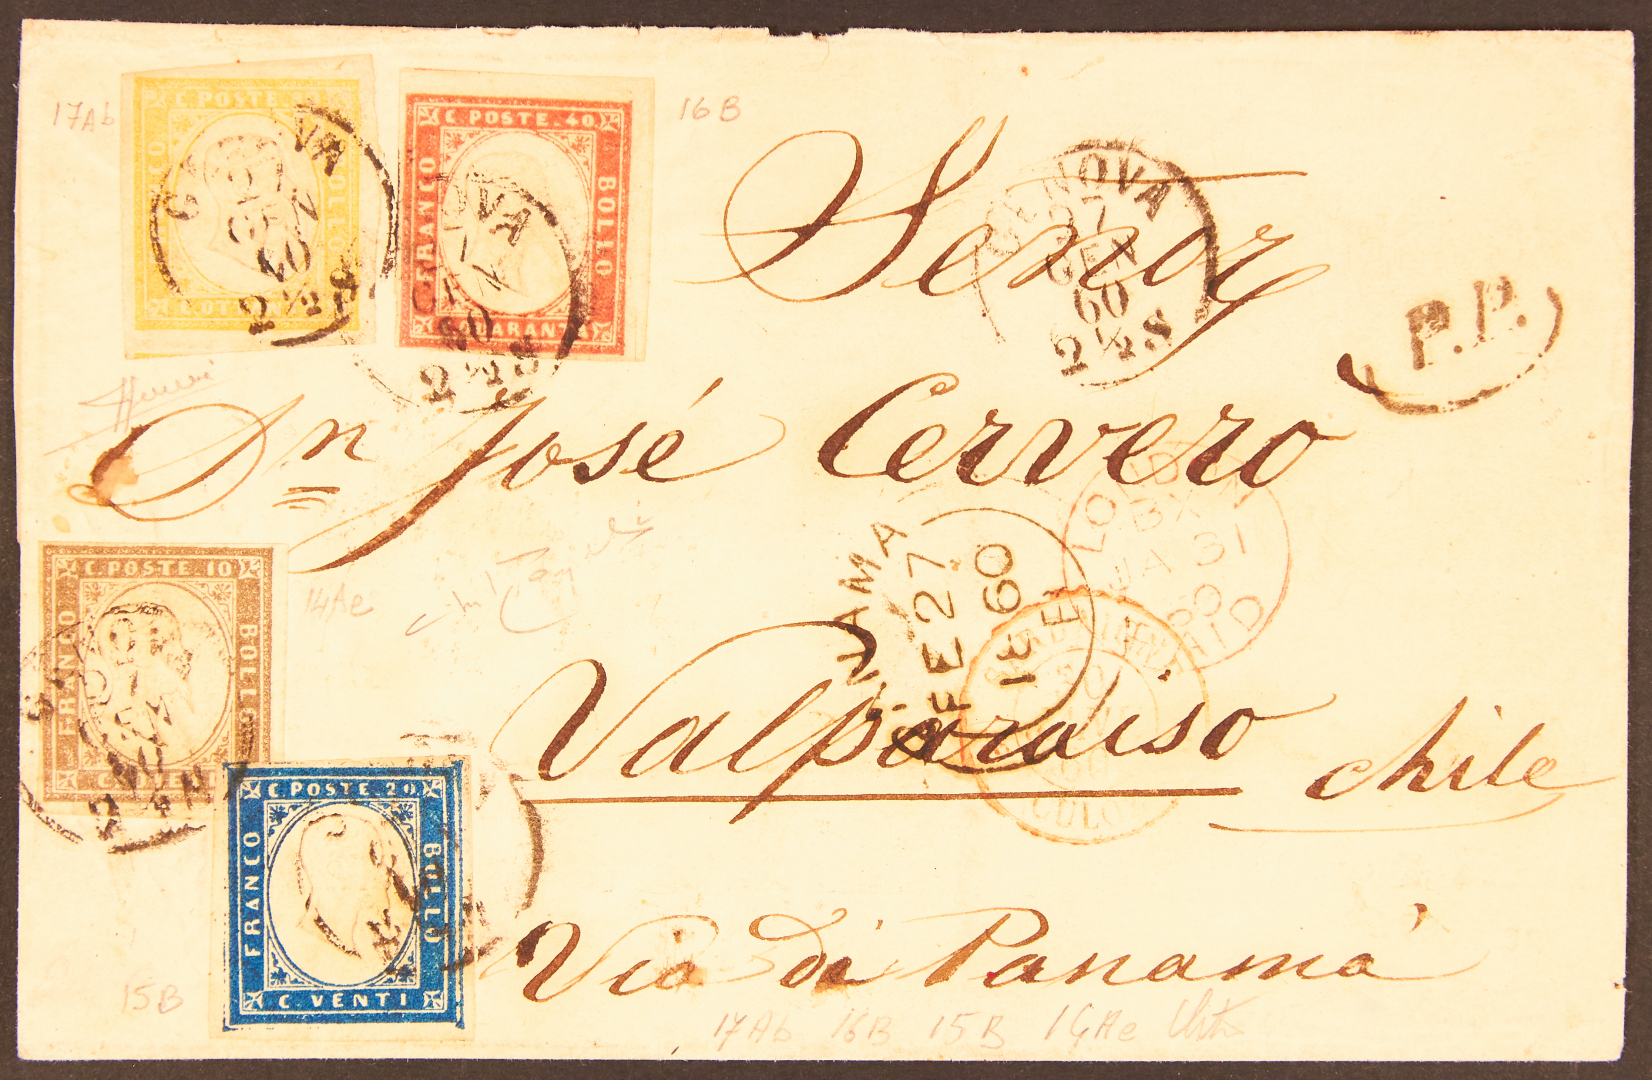 17Ab
C. POSTE. 80
FRANCO
BOLLO
C. OTTANTA
GENOVA
27
GEN
60
2½S
C. POSTE. 40
FRANCO
BOLLO
C. QUARANTA
GEN
60
2½S
16B
Señor
GENOVA
27
GEN
60
2½S
P.P.
Dn José Cervero
LONDON
BX
JA 31
60
PAID
PANAMA
FE 27
1860
C. POSTE. 10
FRANCO
BOLLO
C. DIECI
14Ae
Valparaiso Chile
C. POSTE. 20
FRANCO
BOLLO
C. VENTI
15B
Via di Panamá
17Ab 16B 15B 14Ae